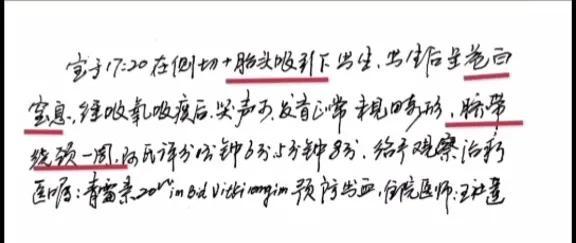 宝于17:20在侧切+胎头吸引下出生,出生后呈苍白
窒息,经吸氧吸痰后,哭声可,发育正常 未见畸形,脐带
绕颈一周,阿氏评分1分钟6分,5分钟8分,给予观察治疗
医嘱:青霉素20 im Bid Vitk1 im 预防出血,住院医师:王社莲